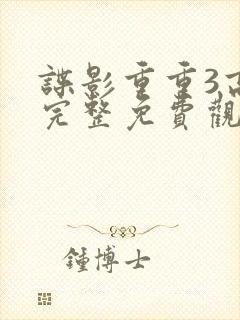 諜影重重3,高
完整免費觀
鍾博士